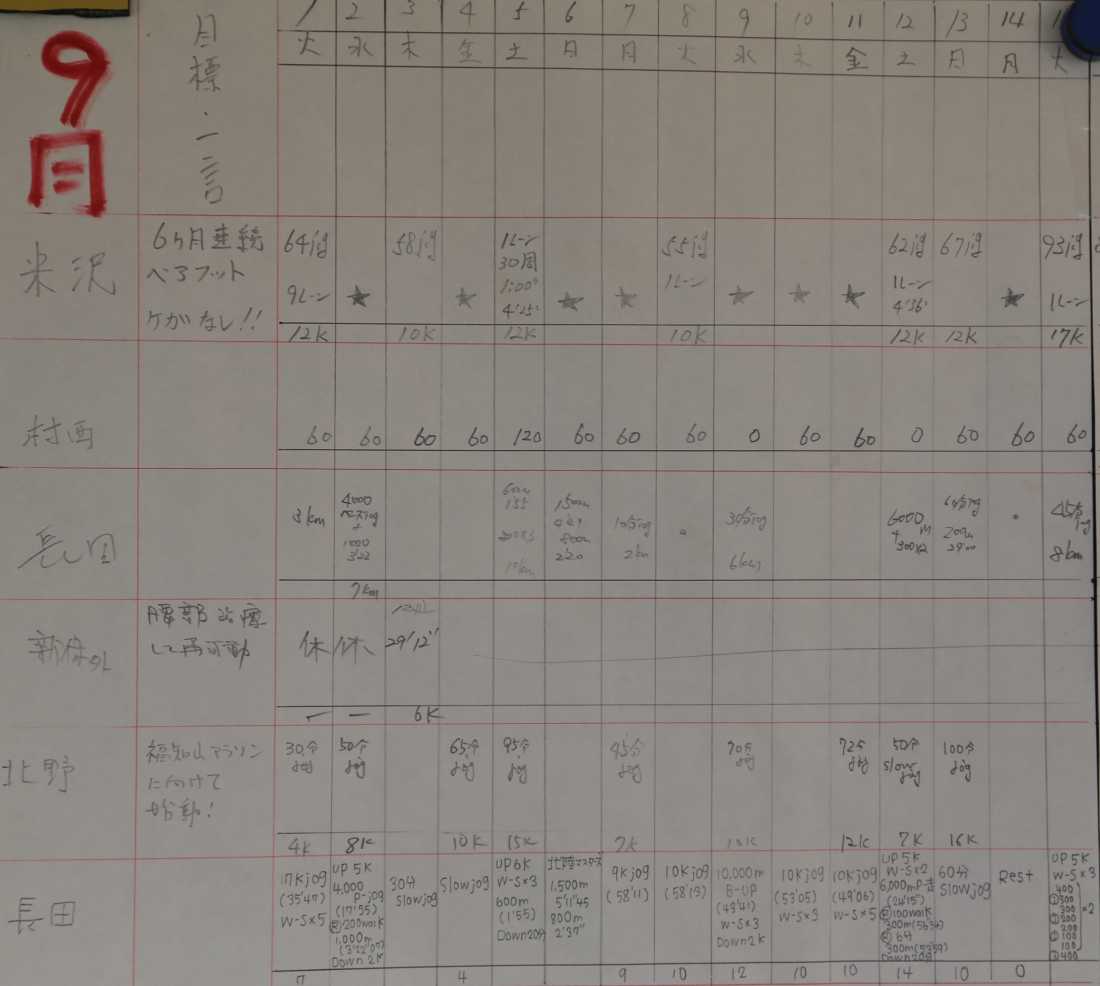 9月
目標・一言
1 2 3 4 5 6 7 8 9 10 11 12 13 14
火 水 木 金 土 日 月 火 水 木 金 土 日 月 火
米沢
6ヶ月連続
ベアフット
ケガなし!!
64jog 58jog 1レーン 55jog 62jog 67jog 93jog
30周
1:00"
4'25"
9レーン ★ ★ ★ ★ 1レーン ★ ★ ★ 1レーン 4'36" ★ 1レーン
12K 10K 12K 10K 12K 12K 17K
村西
60 60 60 60 120 60 60 60 0 60 60 0 60 60 60
長田
3km
4000
+
1000
3'22
7km
1500m
800m
2'20
10分jog
2km
30分jog
6km
6000m
+
300×2
60分jog
200m
45分jog
8km
新保
腰部治療
して再可動
休 休 29'12"
— — 6K
北野
福知山マラソン
に向けて
始動!
30分jog 50分jog 65分jog 95分jog 45分jog 70分jog 72分jog 50分slow jog 100分jog
4K 8K 10K 15K 7K 12K 7K 16K
長田
17Kjog
(35'47)
W-S×5
UP 5K
4,000
P-jog
(17'55)
200walk
1,000m
(3'22"07)
Down 2K
30分
slowjog
slowjog
UP6K
W-S×3
600m
(1'55)
Down20分
北陸マスターズ
1,500m
5'11"45
800m
2'37"
9Kjog
(58'11)
10Kjog
(58'13)
10,000m
B-UP
(43'41)
W-S×3
Down2K
10Kjog
(53'05)
W-S×3
10Kjog
(49'06)
W-S×5
UP5K
W-S×2
6,000mP-走
(24'15)
100walk
300m(56"54)
6分
300m(53"59)
Down20分
60分
slowjog
Rest
UP5K
W-S×3
400
300
300
200
200
100
100
400
×2
7 4 9 10 12 10 10 14 10 0